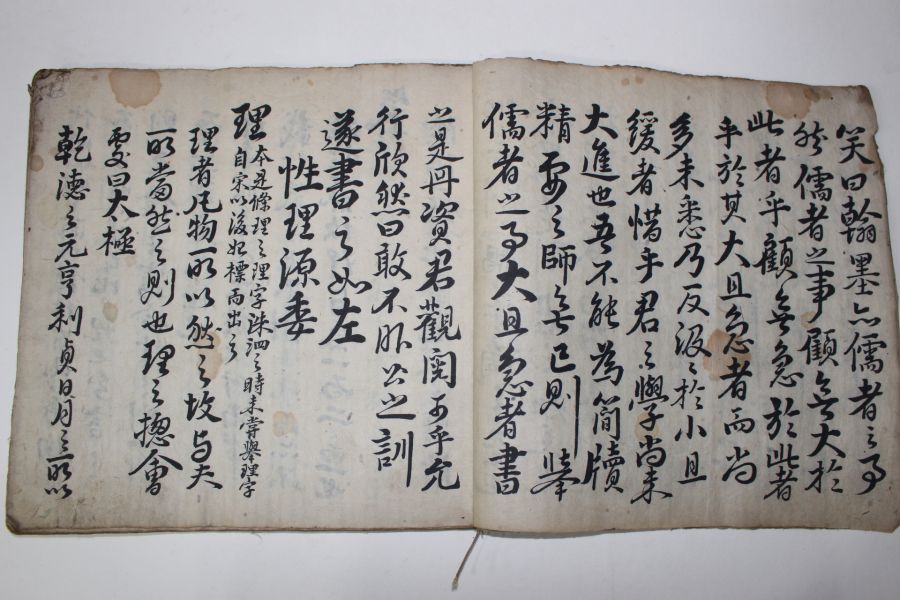 笑曰翰墨亦儒者之事
然儒者之事顧無大於
此者乎顧無急於此者
乎於其大且急者而尚
多未悉乃反汲〻於小且
緩者惜乎君之學尚未
大進也吾不能為簡牘
精要之師無已則擧
儒者之事大且急者書
之是丹資君觀閱可乎允
行欣然曰敢不服公之訓
遂書之如左
性理源委
理
本是條理之理字洙泗之時未嘗擧理字
自宋以後始標而出之
理者凡物所以然之故与夫
所當然之則也理之摠會
處曰太極
乾德之元亨利貞日月之所以